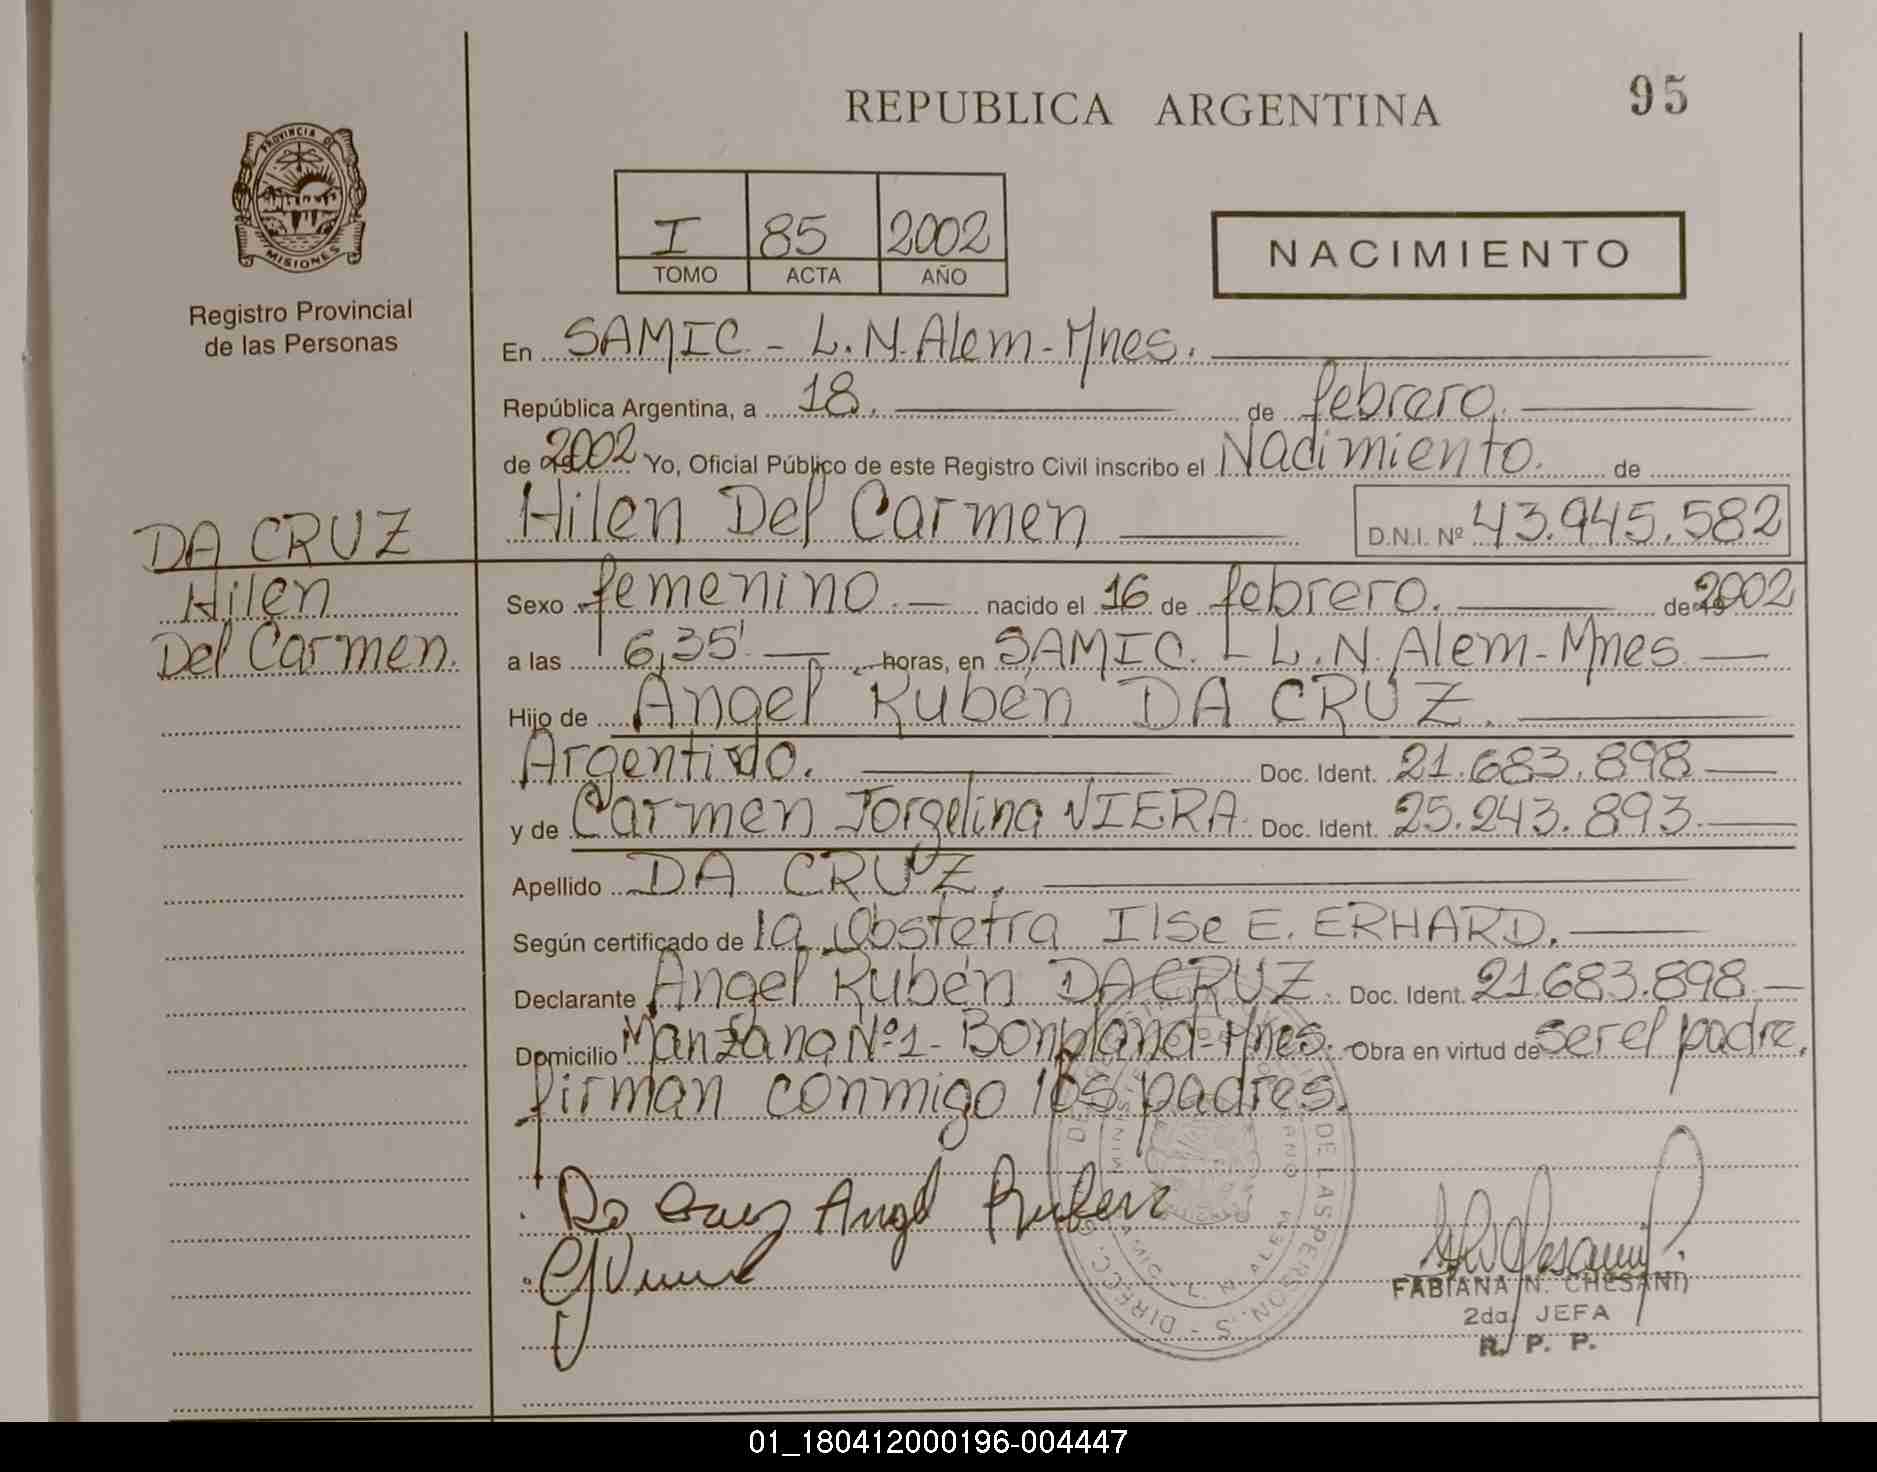 REPUBLICA ARGENTINA
95
PROVINCIA DE
MISIONES
Registro Provincial
de las Personas
I 85 2002
TOMO ACTA AÑO
NACIMIENTO
En SAMIC - L.N.Alem - Mnes.
República Argentina, a 18. de febrero.
de 2002 Yo, Oficial Público de este Registro Civil inscribo el Nacimiento. de
Hilen Del Carmen D.N.I. Nº 43.945.582
DA CRUZ
Hilen
Del Carmen.
Sexo femenino. nacido el 16 de febrero. de 2002
a las 6,35' horas, en SAMIC. - L.N.Alem - Mnes
Hijo de Angel Rubén DA CRUZ.
Argentino. Doc. Ident. 21.683.898
y de Carmen Jorgelina VIERA Doc. Ident. 25.243.893.
Apellido DA CRUZ.
Según certificado de la Obstetra Ilse E. ERHARD.
Declarante Angel Rubén DA CRUZ. Doc. Ident. 21.683.898
Domicilio Manzana Nº 1 - Bonpland - Mnes. Obra en virtud de ser el padre.
firman conmigo los padres.
Da Cruz Angel Ruben
FABIANA N. CHESANI
2da. JEFA
R. P. P.
01_180412000196-004447